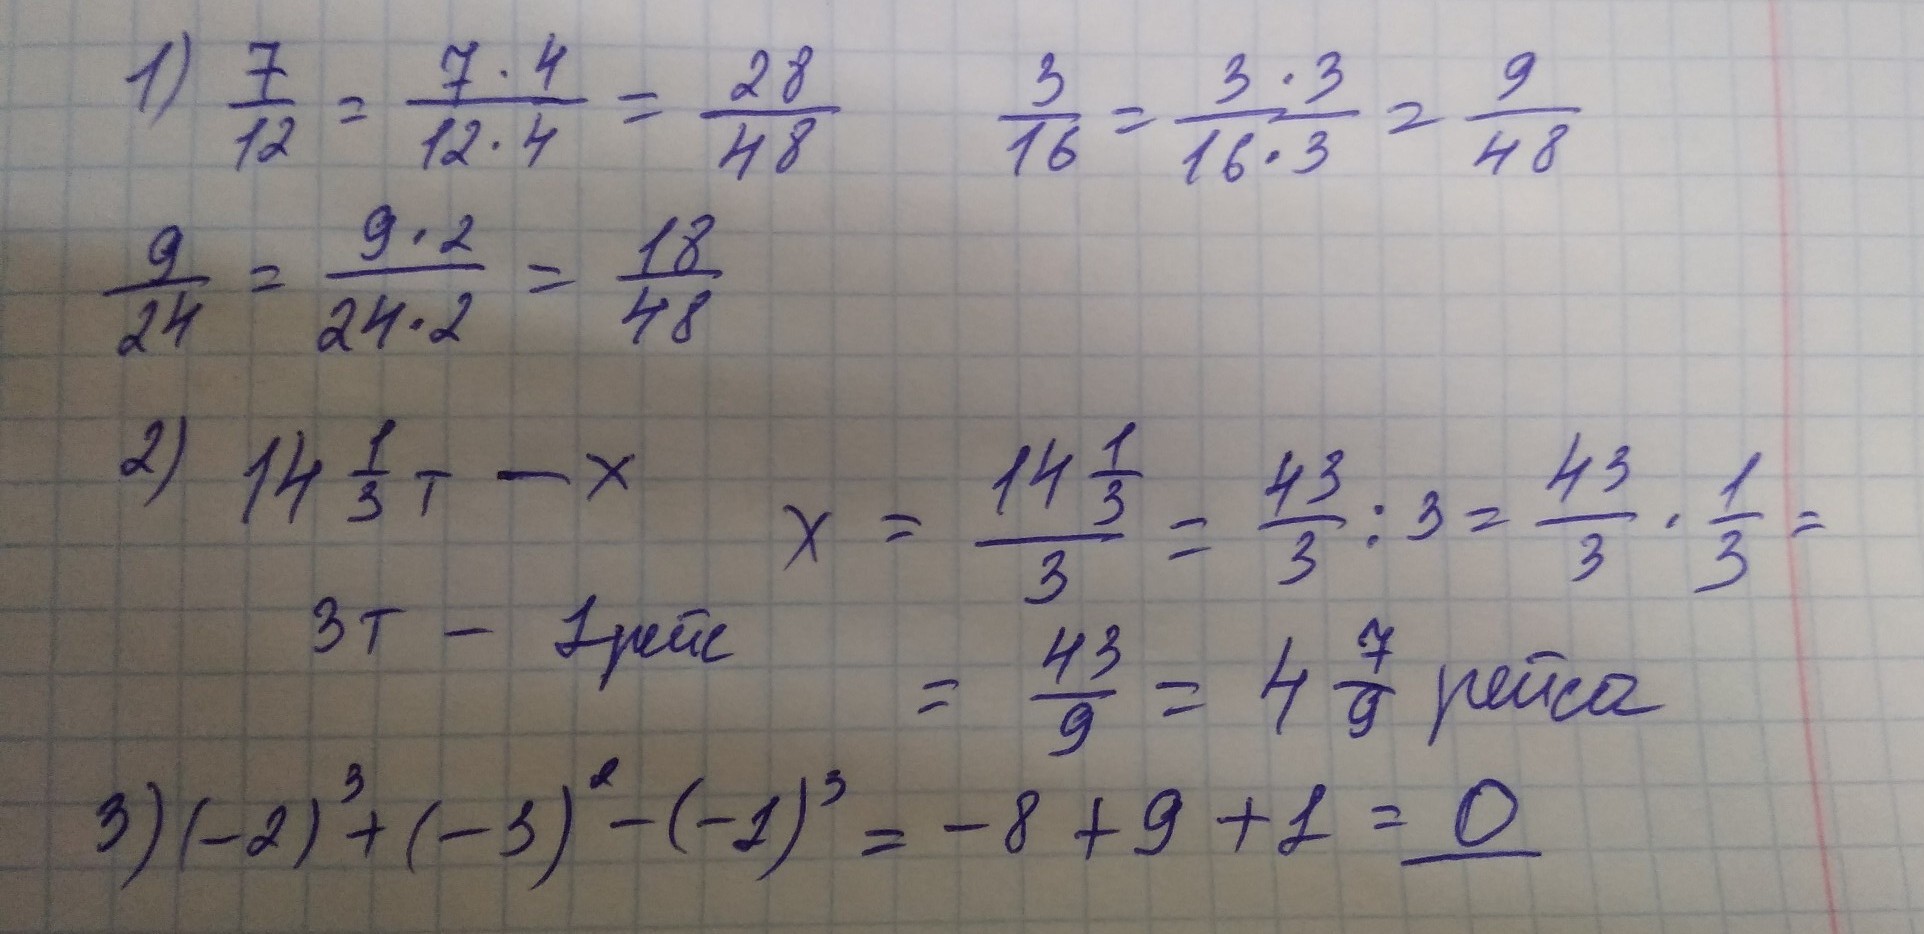 1) 7/12 = 7·4/12·4 = 28/48 3/16 = 3·3/16·3 = 9/48
9/24 = 9·2/24·2 = 18/48
2) 14 1/3 т — x x = 14 1/3/3 = 43/3 : 3 = 43/3 · 1/3 =
3т — 1 рейс = 43/9 = 4 7/9 рейса
3) (-2)³ + (-3)² - (-1)³ = -8 + 9 + 1 = 0